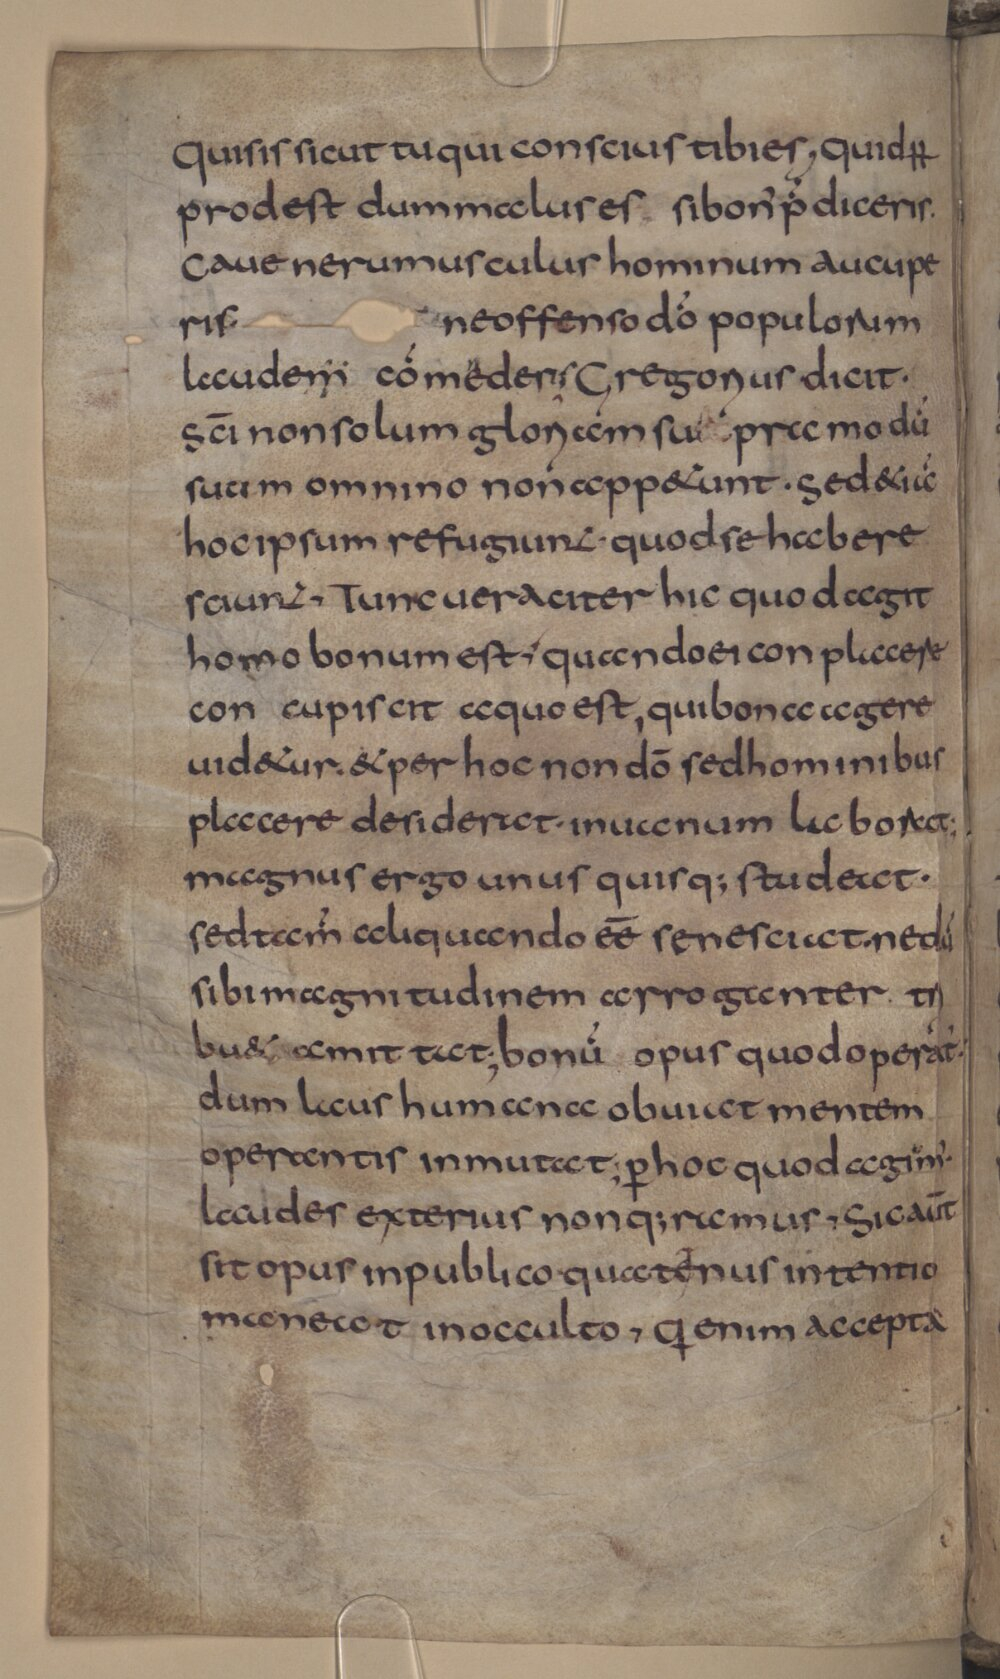 Quisis sicut tu qui conscius tibi es, quid ꝓ
prodest dum malus es si bon' p̊diceris.
Cave ne rumusculus hominum aucupe
ris ne offenso dō populorum
laudem cōmederis; Gregorius dicit.
Sc̄i non solum gloriam su prae modū
suum omnino non appetunt. Sed & iā
hoc ipsum refugiunt quod se habere
sciunt, Tunc veraciter hic quod agit
homo bonum est, quando ei conplacere
con cupiscit a quo est, qui bona agere
uidetur. & per hoc non dō sed hominibus
placere desiderat. in uanum laborat;
magnus ergo unus quisq; studeat.
sed tam̄ aliquando ēē senesciat. ne dū
sibi magnitudinem arroganter tri
bu& amittat; bonū opus quod operat̄.
dum laus humana obuiat mentem
operantis inmutat; ꝑ hoc quod agim'.
laudes exterius non q;ramus, Sic aūt
sit opus in publico quatenus intentio
maneat in occulto, Qi enim accepta